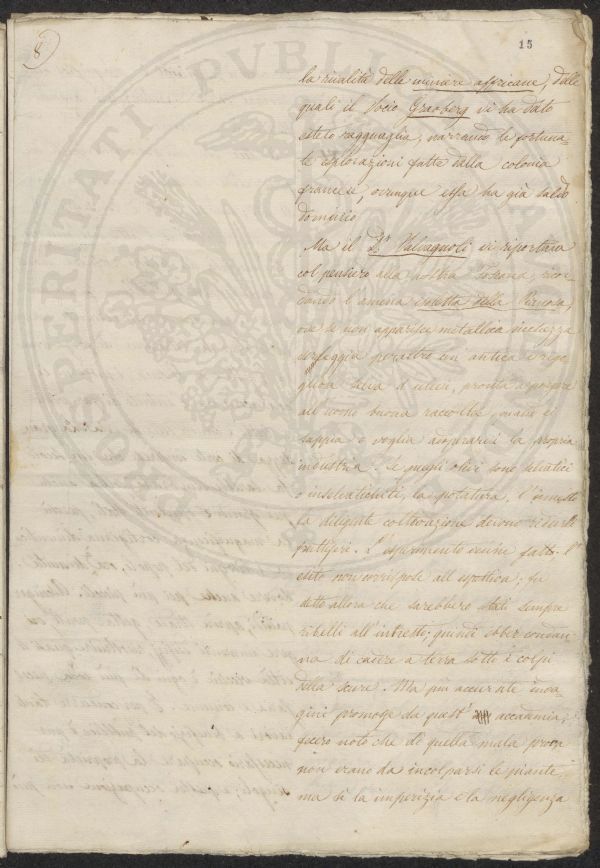 8
15
la rualità delle miniere affricane, dalle
quali il Socio Graoberg vi ha dato
esteto ragguaglia, narrando le fortuna-
te esplorazioni fatte dalla colonia
francese, ovunque essa ha già saldo
dominio.
Ma il D.r Salvagnoli vi riportava
col pensiero alla nostra Toscana, ricor
dando l'amena isoletta della
ove se non apparisce metallica richezza
verdeggia peraltro un antica e rigo
gliosa selva d'ulivi, pronta a porgere
all'uomo buona raccolta, quando ei
sappia e voglia adoprarvi la propria
industria. Se quegli olivi sono selvatici
o insalvatichiti, la potatura, l'innesto
la diligente coltivazione devono ridurli
fruttiferi. L'esperimento venne fatto: l'
esito non corrispose all'aspettiva; fu
detto allora che sarebbero stati sempre
ribelli all'intretto; quindi ebber condan-
na di cadere a terra sotto i colpi
della scure. Ma più accurate inda-
gini promosse da quest' accademia,
fecero noto che di quella mala prova
non erano da incolparsi le piante,
ma sì la imperizia e la negligenza
PROSPERITATI PVBLICAE